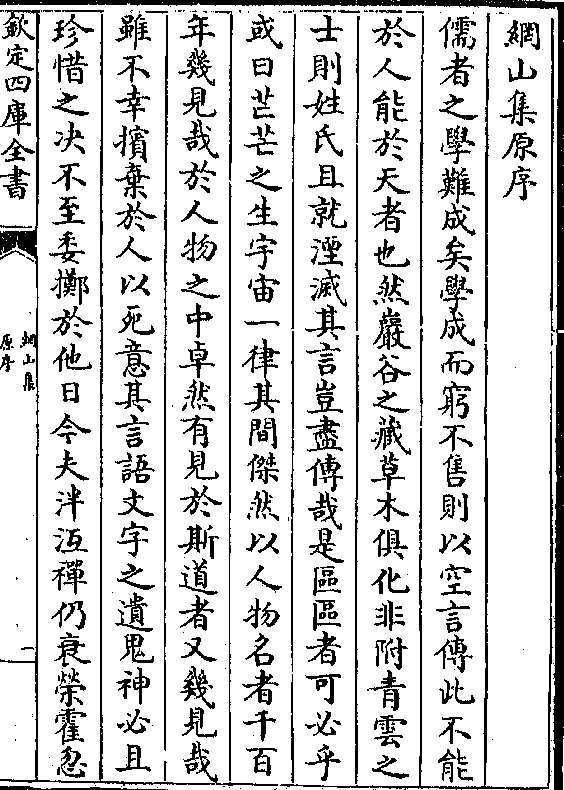 網山集原序
儒者之學難成矣學成而窮不售則以空言傳此不能
於人能於天者也然巖谷之藏草木俱化非附青雲之
士則姓氏且就湮滅其言豈盡傳哉是區區者可必乎
或曰芒芒之生宇宙一律其間傑然以人物名者千百
年幾見哉於人物之中卓然有見於斯道者又幾見哉
雖不幸擯棄於人以死意其言語文字之遺鬼神必且
珍惜之决不至委擲於他日今夫泮沍禪仍衰榮霍忽
欽定四庫全書
網山集
原序
一